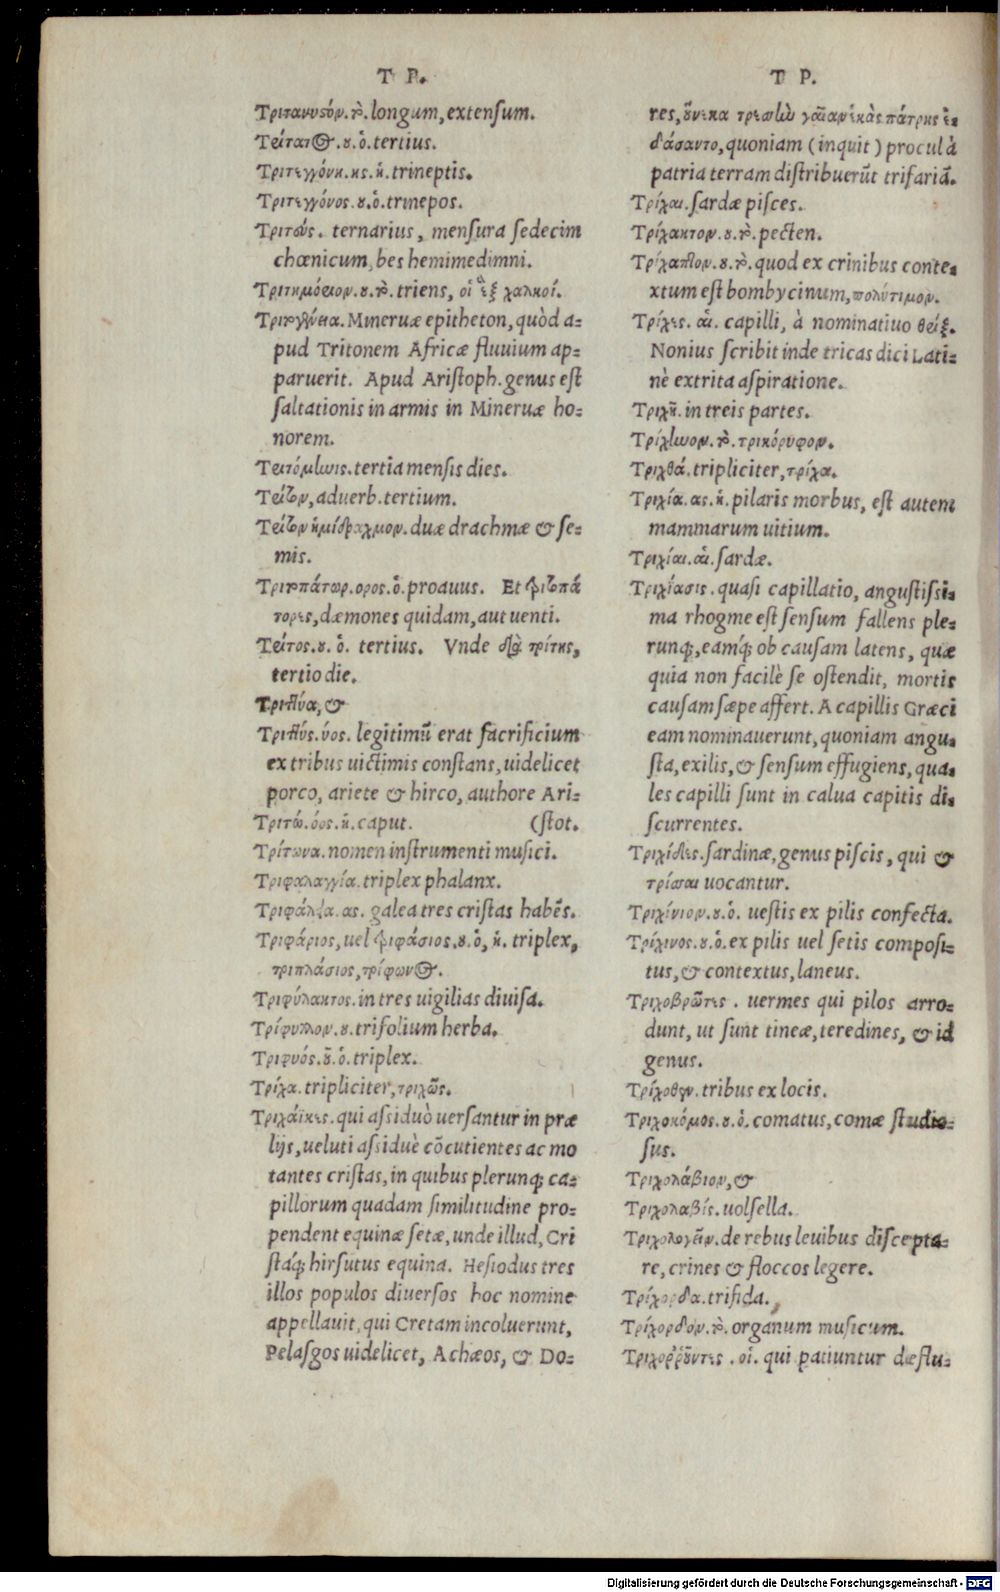 Τ Ρ.
Τριτανυσόν. τό. longum, extensum.
Τρίτατος. ου. ὁ. tertius.
Τριτεγγόνη. ης. ἡ. trineptis.
Τριτεγγόνος. ου. ὁ. trinepos.
Τριτεύς. ternarius, mensura sedecim
chœnicum, bes hemimedimni.
Τριτημόριον. ου. τό. triens, οἱ ἓξ χαλκοί.
Τριτογένεια. Mineruæ epitheton, quòd a-
pud Tritonem Africæ fluuium ap-
paruerit. Apud Aristoph. genus est
saltationis in armis in Mineruæ ho-
norem.
Τριτόμηνις. tertia mensis dies.
Τρίτον, aduerb. tertium.
Τρίτον ἡμίδραχμον. duæ drachmæ & se-
mis.
Τριτοπάτωρ. ορος. ὁ. proauus. Et τριτοπά
τορες, dæmones quidam, aut uenti.
Τρίτος. ου. ὁ. tertius. Vnde διὰ τρίτης,
tertio die.
Τριττύα, &
Τριττύς. ύος. legitimũ erat sacrificium
ex tribus uictimis constans, uidelicet
porco, ariete & hirco, authore Ari-
Τριτώ. όος. ἡ. caput. (stot.
Τρίτωνα. nomen instrumenti musici.
Τριφαλαγγία. triplex phalanx.
Τριφάλεια. ας. galea tres cristas habẽs.
Τριφάριος, uel τριφάσιος. ου. ὁ, ἡ. triplex,
τριπλάσιος, τρίφωνος.
Τριφύλακτος. in tres uigilias diuisa.
Τρίφυλλον. ου. trifolium herba.
Τριφυός. οῦ. ὁ. triplex.
Τρίχα. tripliciter, τριχῶς.
Τριχάϊκες. qui assiduò uersantur in præ
lijs, ueluti assiduè cõcutientes ac mo
tantes cristas, in quibus plerunq; ca-
pillorum quadam similitudine pro-
pendent equinæ setæ, unde illud, Cri
stáq; hirsutus equina. Hesiodus tres
illos populos diuersos hoc nomine
appellauit, qui Cretam incoluerunt,
Pelasgos uidelicet, Achæos, & Do-
Τ Ρ.
res, οὕνεκα τρισσὴν γαῖαν ἑκὰς πάτρης ἐ-
δάσαντο, quoniam (inquit) procul à
patria terram distribuerũt trifariã.
Τρίχαι. sardæ pisces.
Τρίχακτον. ου. τό. pecten.
Τρίχαπτον. ου. τό. quod ex crinibus conte-
xtum est bombycinum, πολύτιμον.
Τρίχες. αἱ. capilli, à nominatiuo θρίξ.
Nonius scribit inde tricas dici Lati-
nè extrita aspiratione.
Τριχῆ. in treis partes.
Τρίχωον. τό. τρικόρυφον.
Τριχθά. tripliciter, τρίχα.
Τριχία. ας. ἡ. pilaris morbus, est autem
mammarum uitium.
Τριχίαι. αἱ. sardæ.
Τριχίασις. quasi capillatio, angustissi-
ma rhogme est sensum fallens ple-
runq;, eamq́; ob causam latens, quæ
quia non facilè se ostendit, mortis
causam sæpe affert. A capillis Græci
eam nominauerunt, quoniam angu-
sta, exilis, & sensum effugiens, qua-
les capilli sunt in calua capitis di-
scurrentes.
Τριχίδες. sardinæ, genus piscis, qui &
τρίσσαι uocantur.
Τριχίνιον. ου. ὁ. uestis ex pilis confecta.
Τρίχινος. ου. ὁ. ex pilis uel setis composi-
tus, & contextus, laneus.
Τριχοβρῶτες. uermes qui pilos arro-
dunt, ut sunt tineæ, teredines, & id
genus.
Τρίχοθεν. tribus ex locis.
Τριχοκόμος. ου. ὁ. comatus, comæ studio-
sus.
Τριχολάβιον, &
Τριχολαβίς. uolsella.
Τριχολογεῖν. de rebus leuibus discepta-
re, crines & floccos legere.
Τρίχορδα. trifida.
Τρίχορδον. τό. organum musicum.
Τριχοῤῥοῦντες. οἱ. qui patiuntur dæflu-
Digitalisierung gefördert durch die Deutsche Forschungsgemeinschaft - DFG